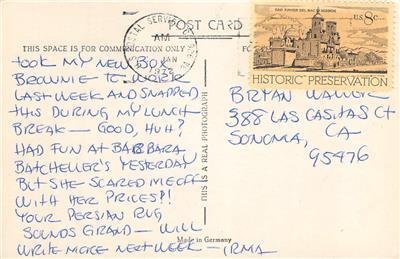 POST CARD
THIS SPACE IS FOR COMMUNICATION ONLY
TOOK MY NEW BOX
BROWNIE TO WORK
LAST WEEK AND SNAPPED
THIS DURING MY LUNCH
BREAK — GOOD, HUH?
HAD FUN AT BARBARA
BATCHELLER'S YESTERDAY
BUT SHE SCARED ME OFF
WITH HER PRICES?!
YOUR PERSIAN RUG
SOUNDS GRAND — WILL
WRITE MORE NEXT WEEK — IRMA
Made in Germany
THIS IS A REAL PHOTOGRAPH
POSTAL SERVICE
AM
JAN
SAN XAVIER DEL BAC MISSION
U.S. 8c
HISTORIC PRESERVATION
BRYAN
388 LAS CASITAS CT
SONOMA, CA
95476